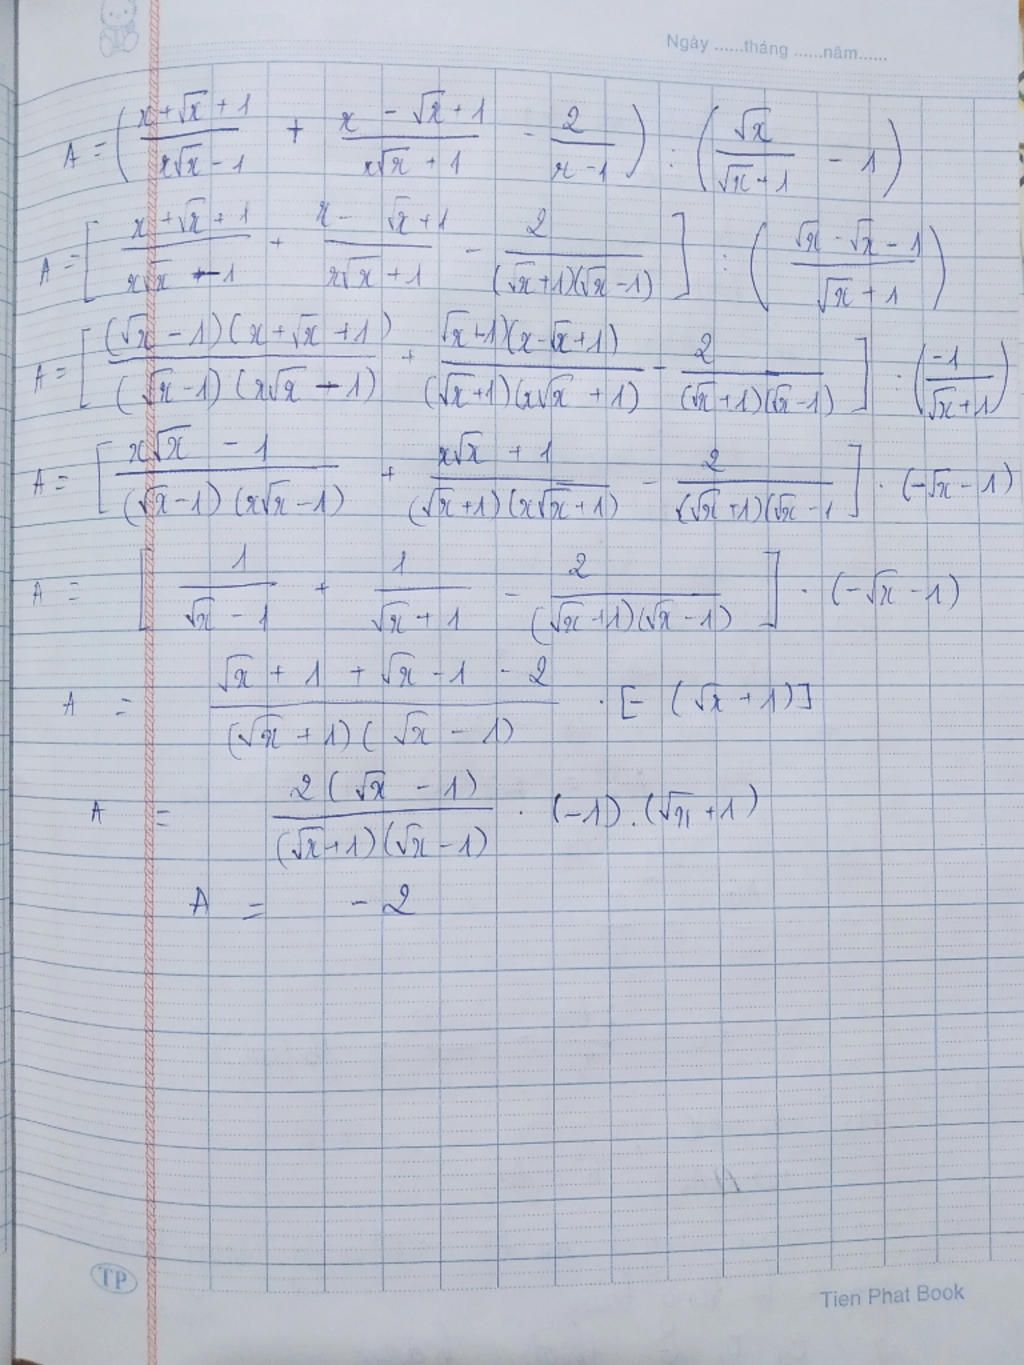 Ngày ......tháng ......năm......
A = ( (x + √x + 1)/(x√x - 1) + (x - √x + 1)/(x√x + 1) - 2/(x - 1) ) : ( √x/(√x + 1) - 1 )
A = [ (x + √x + 1)/(x√x - 1) + (x - √x + 1)/(x√x + 1) - 2/((√x + 1)(√x - 1)) ] : ( (√x - √x - 1)/(√x + 1) )
A = [ (√x - 1)(x + √x + 1)/((√x - 1)(x√x - 1)) + √x + 1)(x - √x + 1)/((√x + 1)(x√x + 1)) - 2/((√x + 1)(√x - 1)) ] : ( -1/(√x + 1) )
A = [ (x√x - 1)/((√x - 1)(x√x - 1)) + (x√x + 1)/((√x + 1)(x√x + 1)) - 2/((√x + 1)(√x - 1 ] . (-√x - 1)
A = [ 1/(√x - 1) + 1/(√x + 1) - 2/((√x + 1)(√x - 1)) ] . (-√x - 1)
A = (√x + 1 + √x - 1 - 2)/((√x + 1)(√x - 1)) . [- (√x + 1)]
A = 2(√x - 1)/((√x + 1)(√x - 1)) . (-1) . (√x + 1)
A = - 2
TP
Tien Phat Book